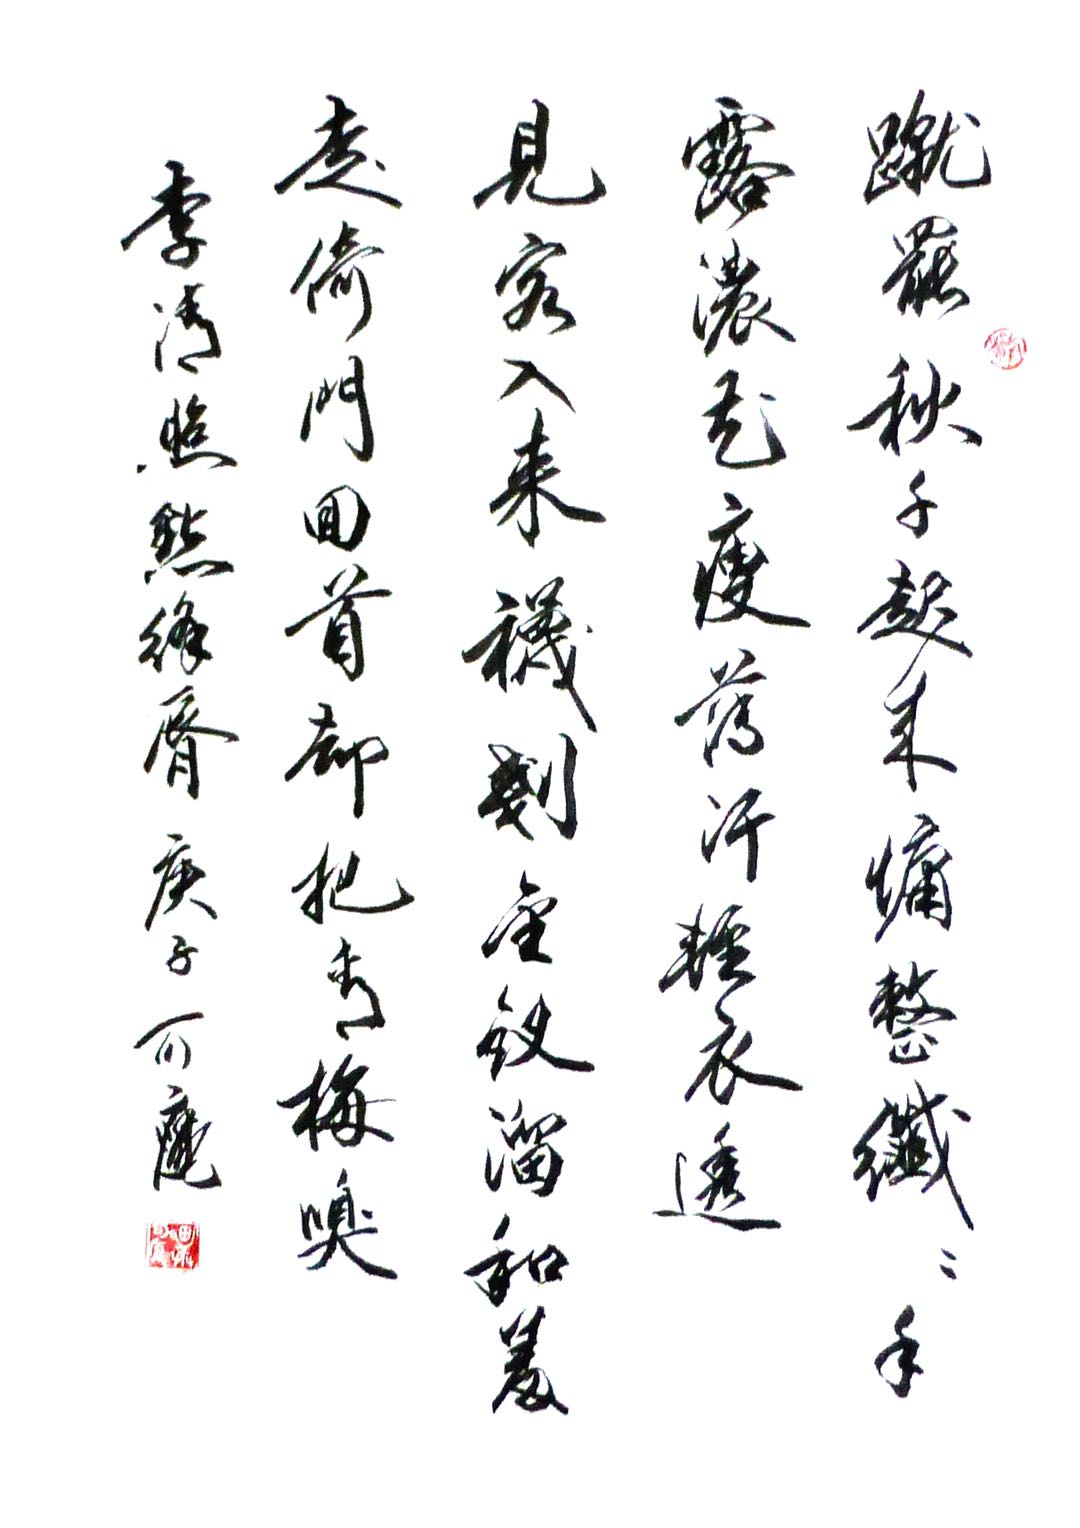 蹴罷秋千起来慵整纖〻手
露濃花瘦薄汗輕衣透
見客入来襪剗金釵溜和羞
走倚門回首却把青梅嗅
李清照點絳脣 庚子